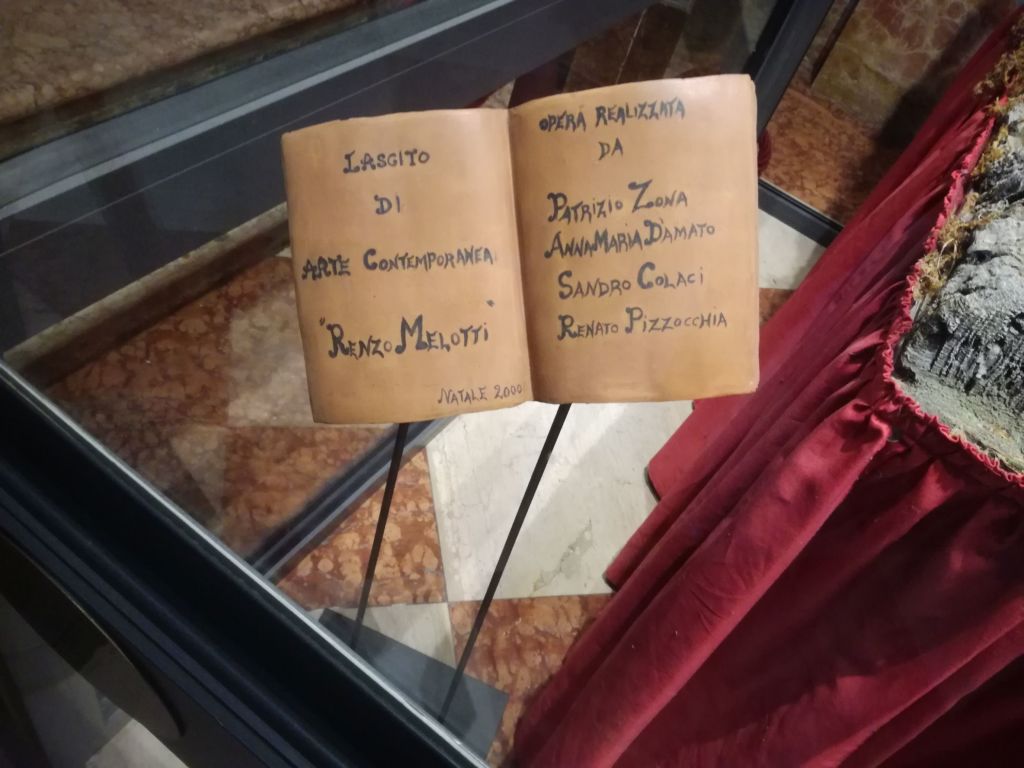 LASCITO
DI
ARTE CONTEMPORANEA
"RENZO MELOTTI"
NATALE 2000
OPERA REALIZZATA
DA
PATRIZIO ZONA
ANNAMARIA D'AMATO
SANDRO COLACI
RENATO PIZZOCCHIA